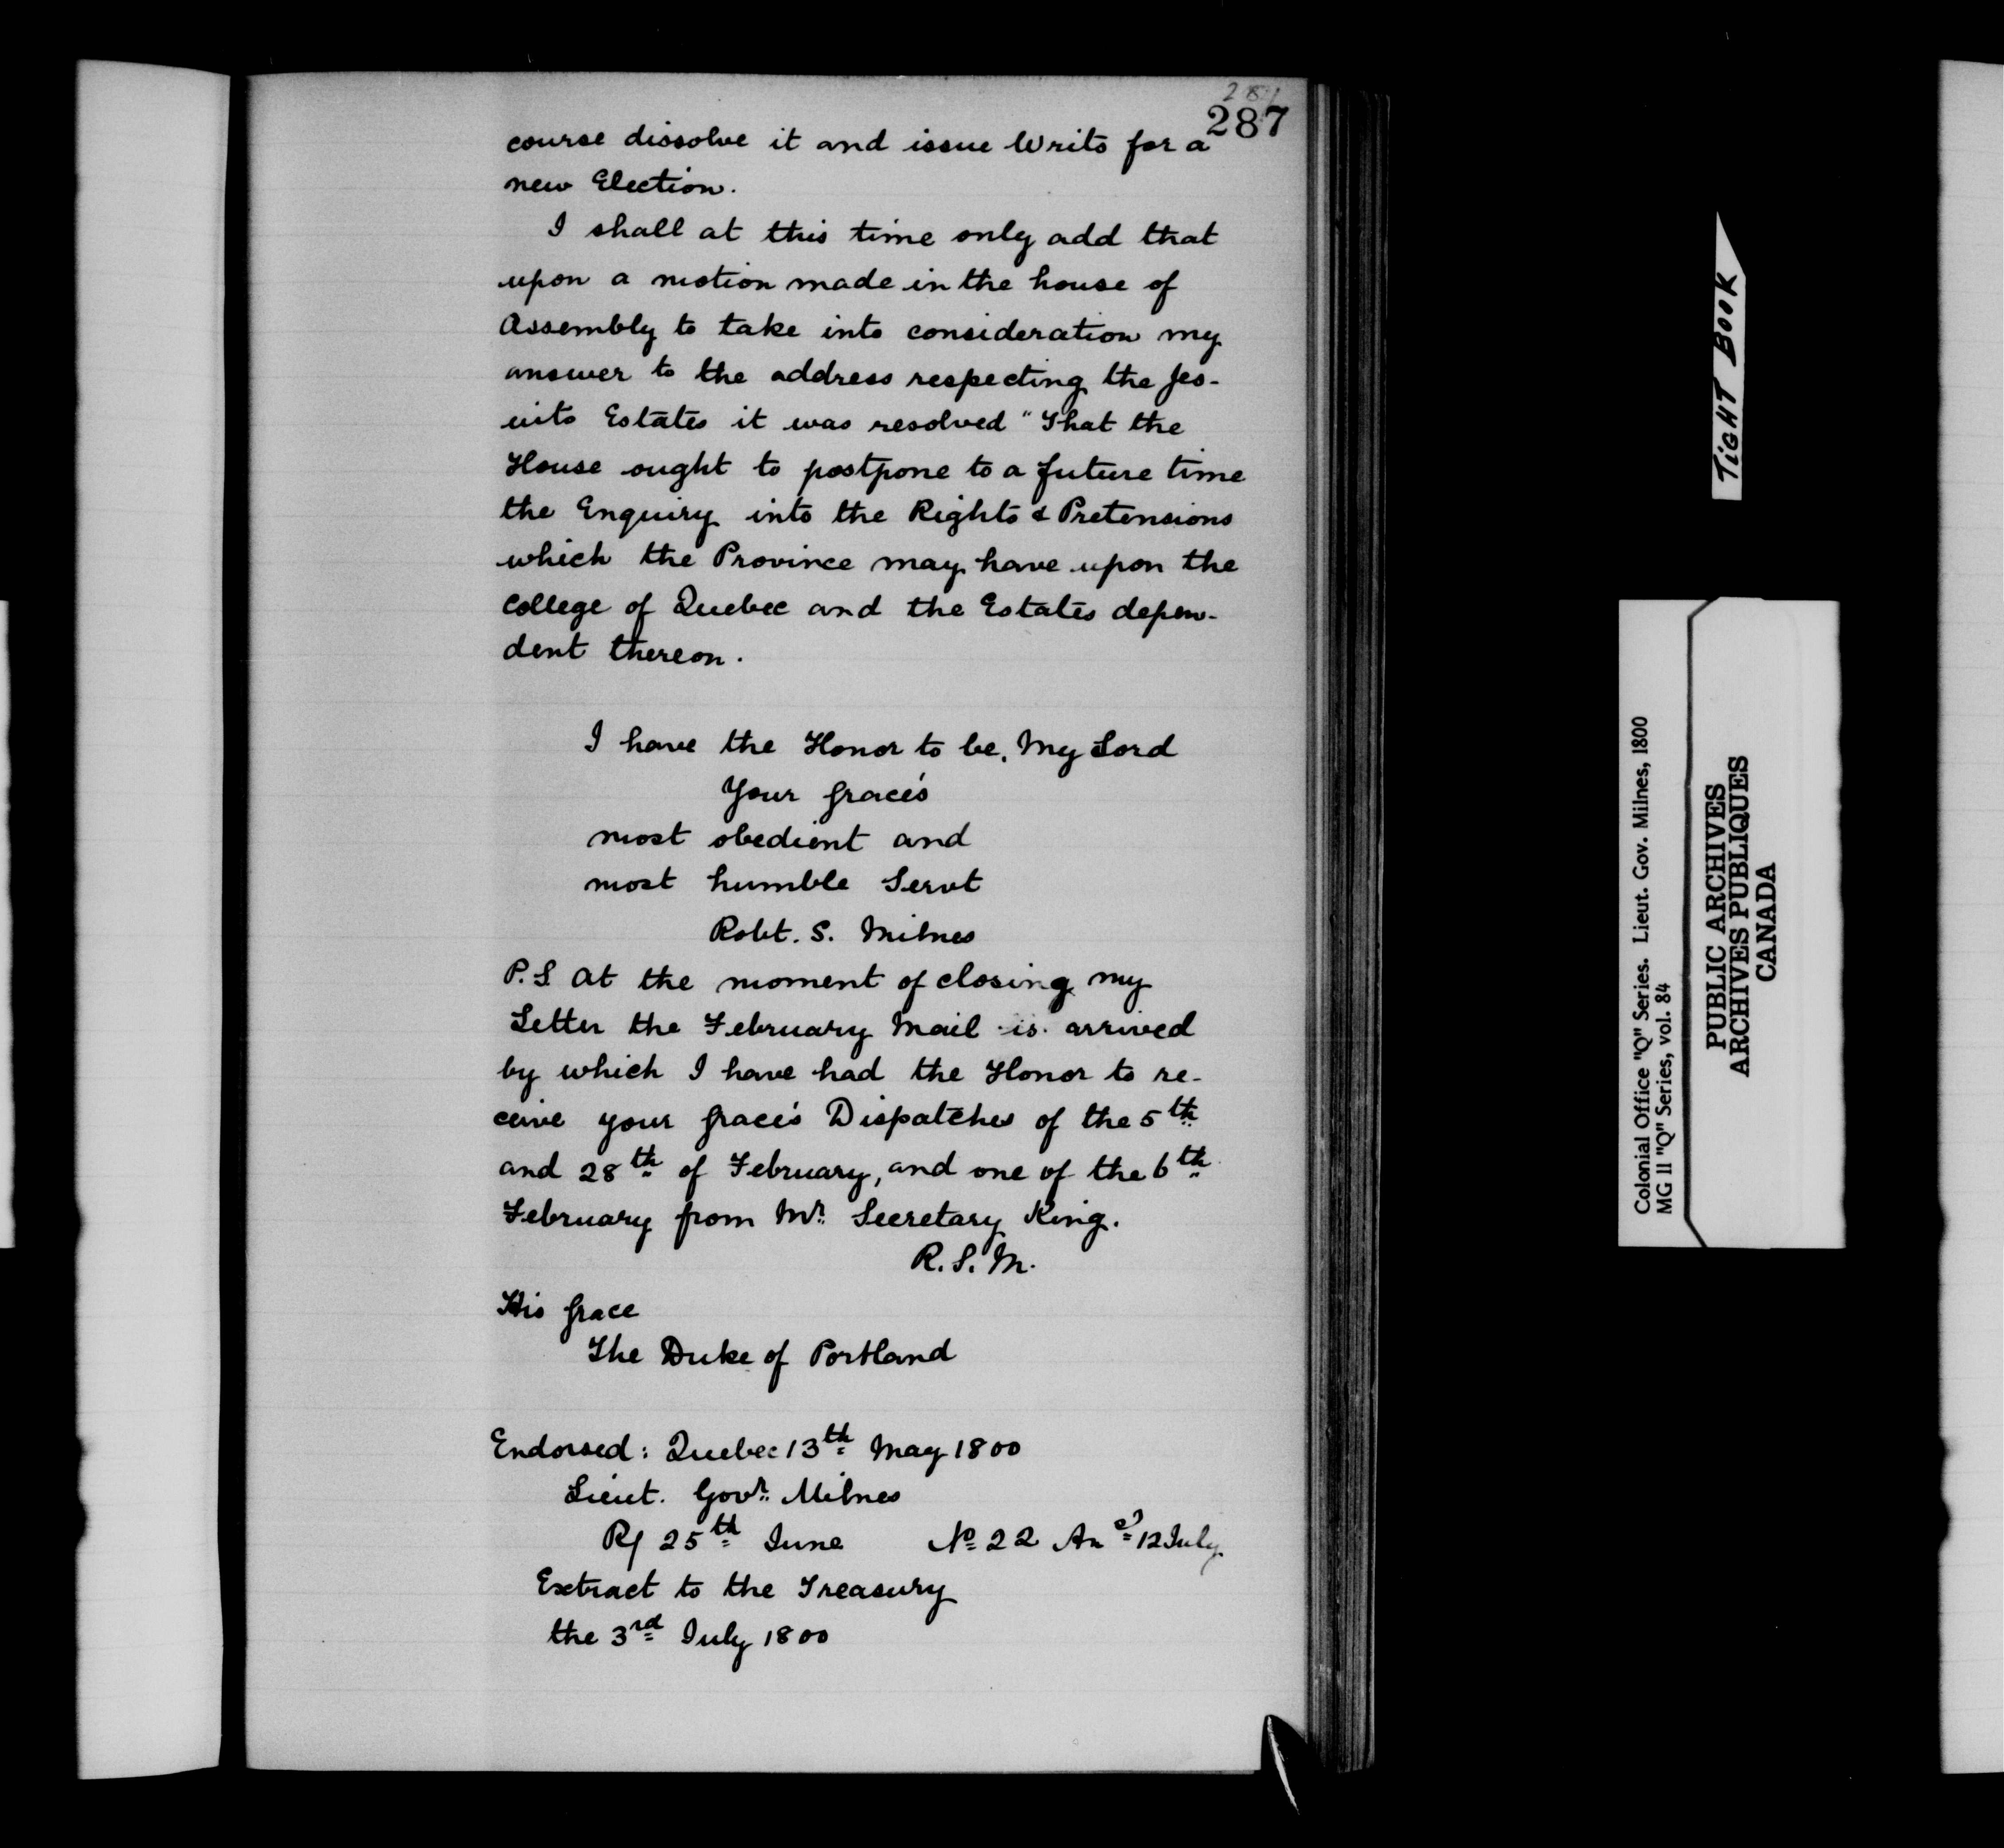 287
287
course dissolve it and issue Writs for a
new Election.
I shall at this time only add that
upon a motion made in the house of
Assembly to take into consideration my
answer to the address respecting the Jes-
uits Estates it was resolved "That the
House ought to postpone to a future time
the Enquiry into the Rights & Pretensions
which the Province may have upon the
College of Quebec and the Estates depen-
dent thereon.
I have the Honor to be, My Lord
Your Grace's
most obedient and
most humble Servt
Robt. S. Milnes
P.S At the moment of closing my
Letter the February Mail is arrived
by which I have had the Honor to re-
ceive your Grace's Dispatches of the 5th
and 28th of February, and one of the 6th
February from Mr. Secretary King.
R.S.M.
His Grace
The Duke of Portland
Endorsed: Quebec 13th May 1800
Lieut. Govr. Milnes
R/ 25th June No 22 Ansd 12 July
Extract to the Treasury
the 3rd July 1800
TIGHT BOOK
Colonial Office "Q" Series. Lieut. Gov. Milnes, 1800
MG 11 "Q" Series, vol. 84
PUBLIC ARCHIVES
ARCHIVES PUBLIQUES
CANADA